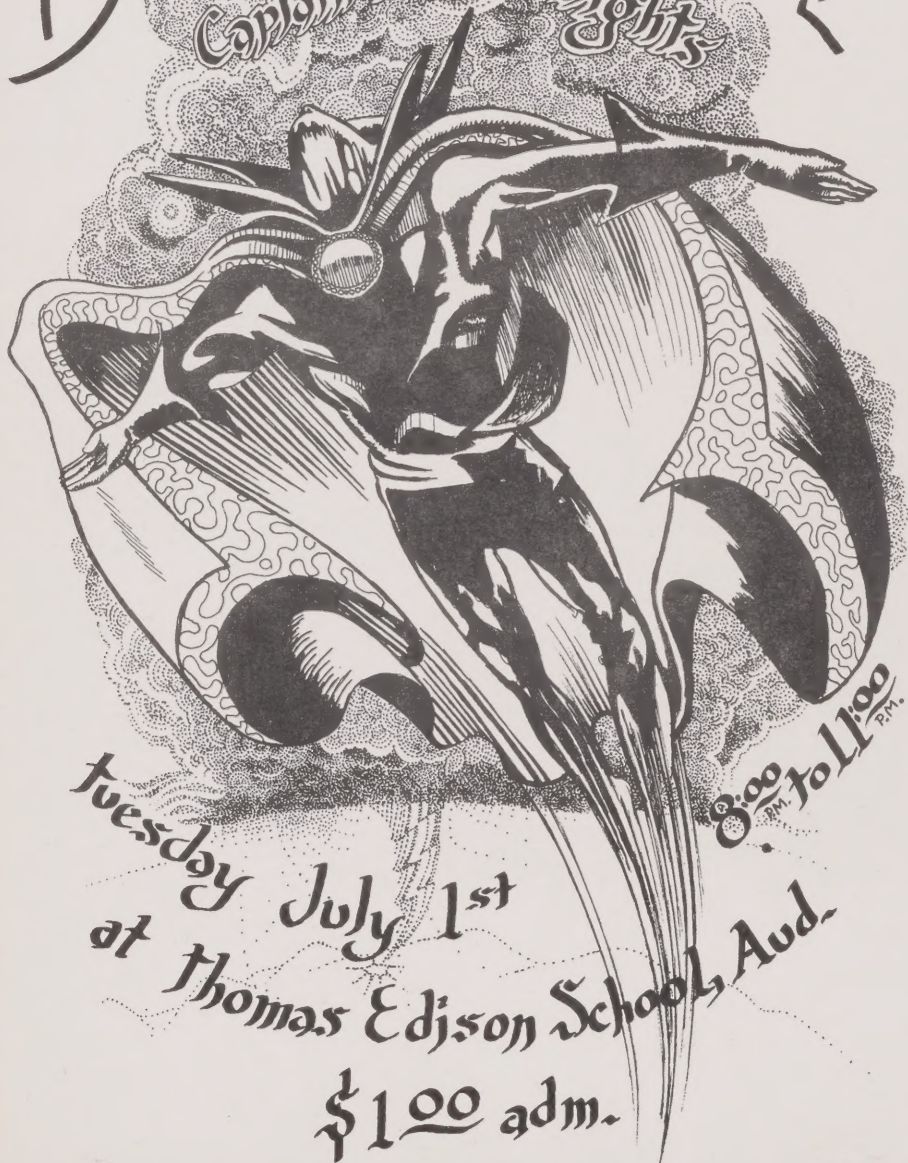 Captain
ghts
8:00 P.M. to 11:00 P.M.
tuesday July 1st
at Thomas Edison School, Aud.
$1.00 adm.